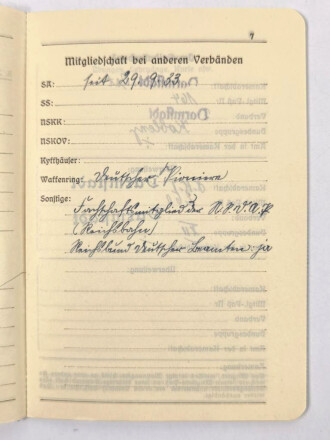 4
Mitgliedschaft bei anderen Verbänden
SA: seit 29.9.33
SS:
NSKK:
NSKOV:
Kyffhäuser:
Waffenring: Deutscher Pioniere
Sonstige: Fachschaftsmitglied der N.S.D.A.P
(Reichsbahn)
Reichsbund Deutscher Beamten: ja